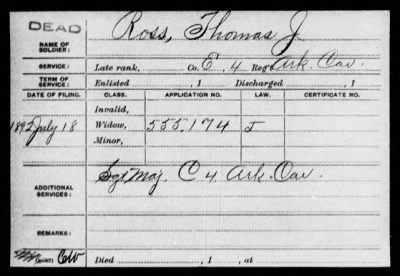 DEAD
Ross, Thomas J.
NAME OF SOLDIER:
SERVICE: Late rank, Co. E, 4 Reg't Ark. Cav.
TERM OF SERVICE: Enlisted , 1 Discharged , 1
DATE OF FILING. CLASS. APPLICATION NO. LAW. CERTIFICATE NO.
Invalid,
1892 July 18 Widow, 555,174 J
Minor,
ADDITIONAL SERVICES: Sgt Maj. C 4 Ark. Cav.
REMARKS:
Died , 1 , at